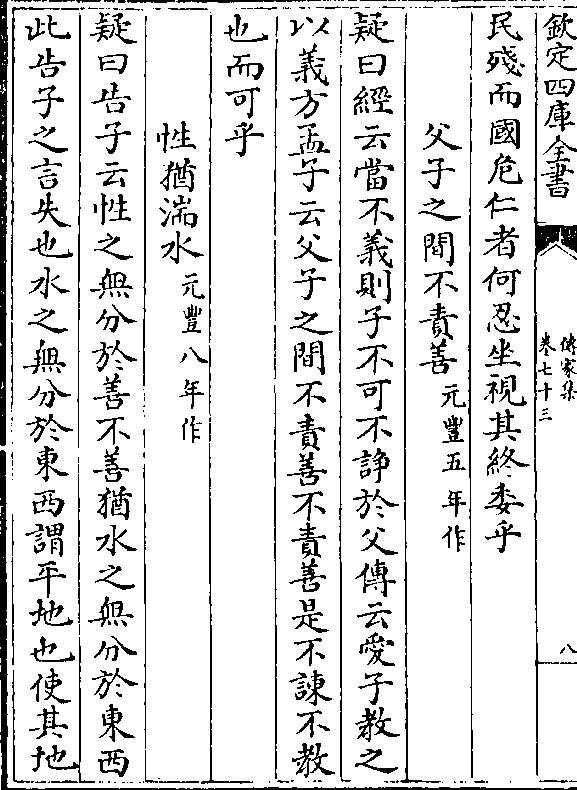 欽定四庫全書
傳家集
卷七十三
八
民殘而國危仁者何忍坐視其終委乎
父子之間不責善元豐五年作
疑曰經云當不義則子不可不諍於父傳云愛子教之
以義方孟子云父子之間不責善不責善是不諫不教
也而可乎
性猶湍水元豐八年作
疑曰告子云性之無分於善不善猶水之無分於東西
此告子之言失也水之無分於東西謂平地也使其地